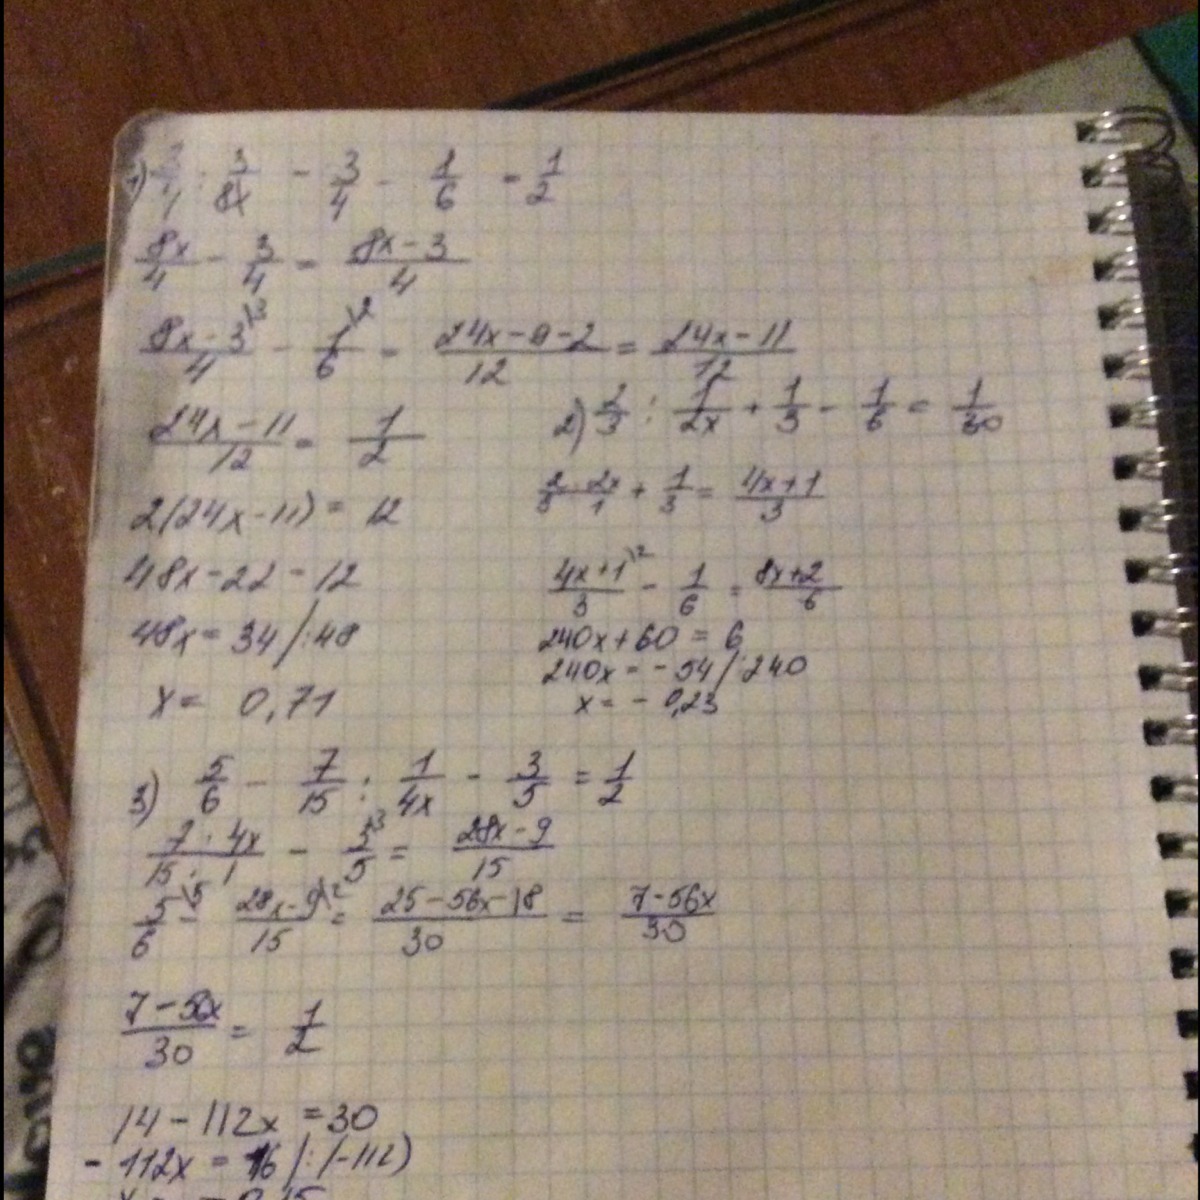 1) 3/4 : 3/8x - 3/4 - 1/6 = 1/2
8x/4 - 3/4 = (8x-3)/4
(8x-3)/4 \3 - 1/6 \2 = (24x-9-2)/12 = (24x-11)/12
(24x-11)/12 = 1/2
2(24x-11) = 12
48x-22 = 12
48x = 34 /:48
x = 0,71
2) 2/3 : 1/2x + 1/3 - 1/6 = 1/30
2·2x/3·1 + 1/3 = (4x+1)/3
(4x+1)/3 \2 - 1/6 = (8x+2)/6
240x+60 = 6
240x = -54 /:240
x = - 0,23
3) 5/6 - 7/15 : 1/4x - 3/5 = 1/2
7·4x/15·1 - 3/5 \3 = (28x-9)/15
5/6 \5 - (28x-9)/15 \2 = (25-56x-18)/30 = (7-56x)/30
(7-56x)/30 = 1/2
14-112x = 30
-112x = 16 /:(-112)